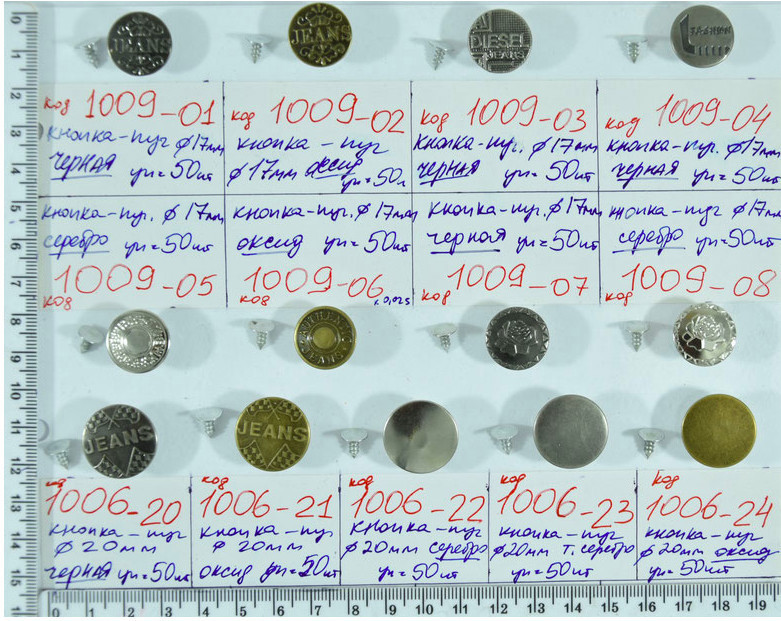 JEANS
JEANS
DIESEL
JEANS
FASHION
код 1009-01
код 1009-02
код 1009-03
код 1009-04
кнопка-пуг ф17мм
черная уп=50шт
кнопка-пуг
ф17мм оксид
уп=50
кнопка-пуг. ф17мм
черная уп=50шт
кнопка-пуг. ф17мм
черная уп=50шт
кнопка-пуг. ф17мм
серебро уп=50шт
кнопка-пуг. ф17мм
оксид уп=50шт
кнопка-пуг. ф17мм
черная уп=50шт
кнопка-пуг ф17мм
серебро уп=50шт
1009-05
код
1009-06
код
1009-07
код
1009-08
код
JEANS
JEANS
JEANS
код
1006-20
код
1006-21
код
1006-22
код
1006-23
код
1006-24
кнопка-пуг
ф 20мм
черная уп=50шт
кнопка-пуг
ф 20мм
оксид уп=50шт
кнопка-пуг
ф20мм серебро
уп=50шт
кнопка-пуг
ф20мм т.серебро
уп=50шт
кнопка-пуг
ф20мм оксид
уп=50шт
0 1 2 3 4 5 6 7 8 9 10 11 12 13 14 15
0 1 2 3 4 5 6 7 8 9 10 11 12 13 14 15 16 17 18 19